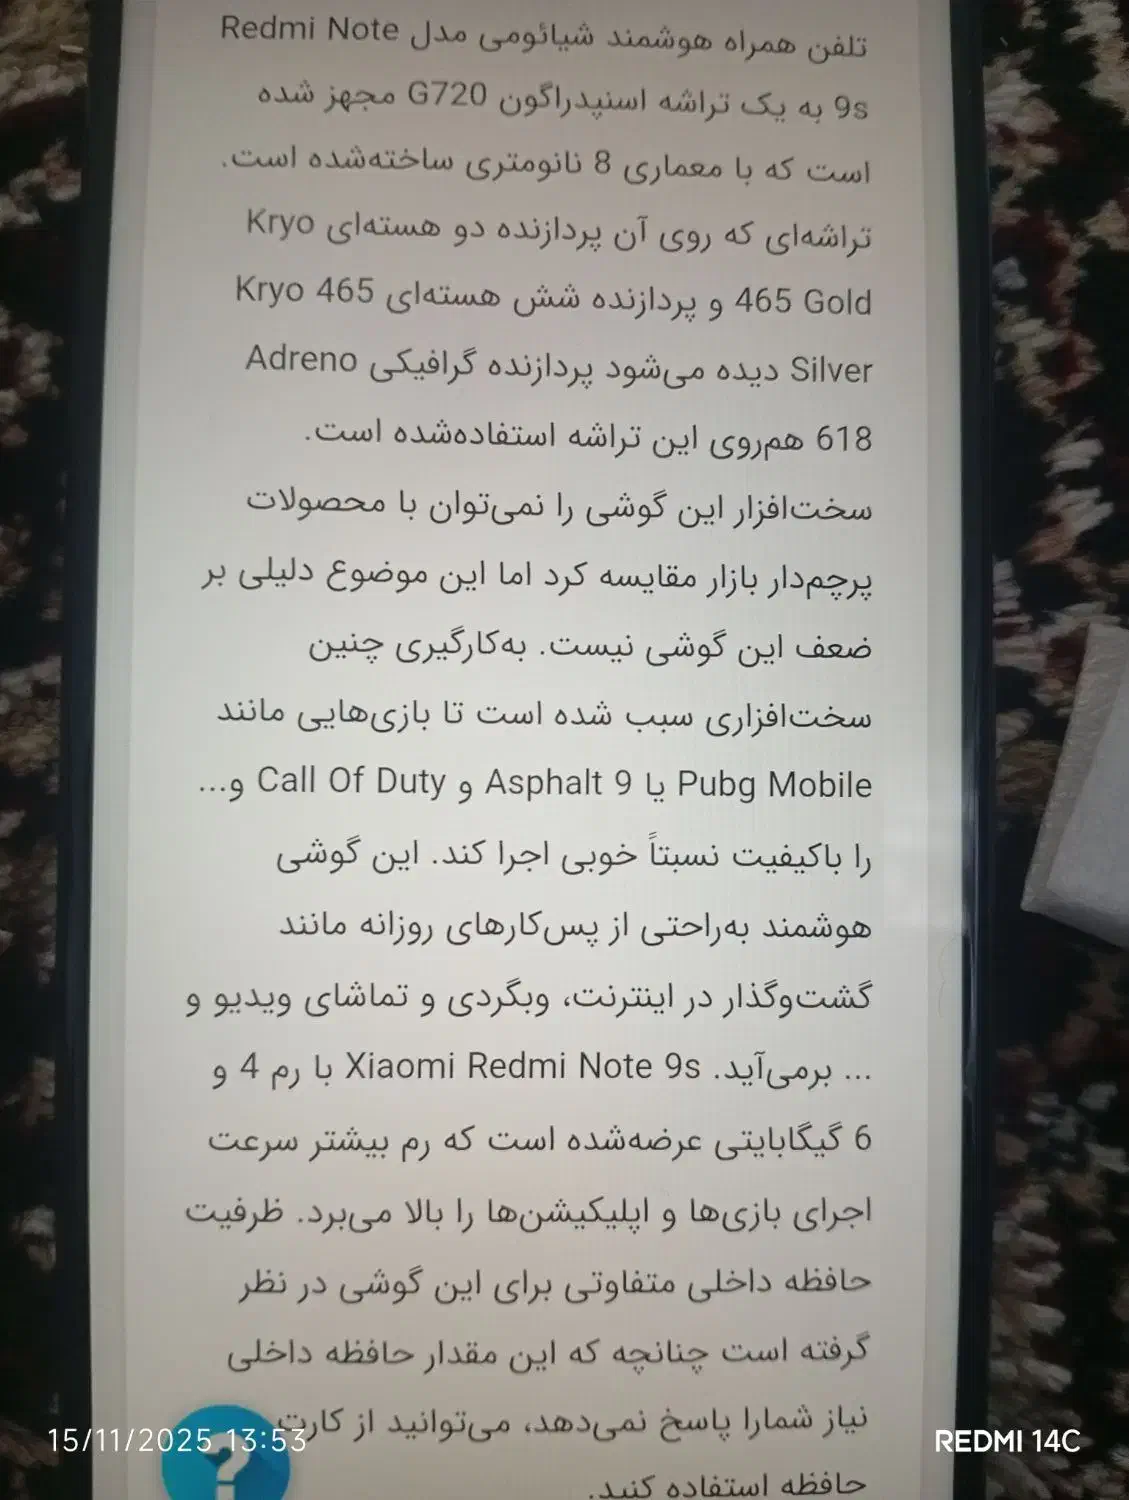 تلفن همراه هوشمند شیائومی مدل Redmi Note
9s به یک تراشه اسنپدراگون G720 مجهز شده
است که با معماری 8 نانومتری ساخته‌شده است.
تراشه‌ای که روی آن پردازنده دو هسته‌ای Kryo
465 Gold و پردازنده شش هسته‌ای Kryo 465
Silver دیده می‌شود پردازنده گرافیکی Adreno
618 هم‌روی این تراشه استفاده‌شده است.
سخت‌افزار این گوشی را نمی‌توان با محصولات
پرچم‌دار بازار مقایسه کرد اما این موضوع دلیلی بر
ضعف این گوشی نیست. به‌کارگیری چنین
سخت‌افزاری سبب شده است تا بازی‌هایی مانند
Pubg Mobile یا Asphalt 9 و Call Of Duty و...
را باکیفیت نسبتاً خوبی اجرا کند. این گوشی
هوشمند به‌راحتی از پس‌کارهای روزانه مانند
گشت‌وگذار در اینترنت، وبگردی و تماشای ویدیو و
... برمی‌آید. Xiaomi Redmi Note 9s با رم 4 و
6 گیگابایتی عرضه‌شده است که رم بیشتر سرعت
اجرای بازی‌ها و اپلیکیشن‌ها را بالا می‌برد. ظرفیت
حافظه داخلی متفاوتی برای این گوشی در نظر
گرفته است چنانچه که این مقدار حافظه داخلی
نیاز شمارا پاسخ نمی‌دهد، می‌توانید از کارت
حافظه استفاده کنید.
?
15/11/2025 13:53
REDMI 14C